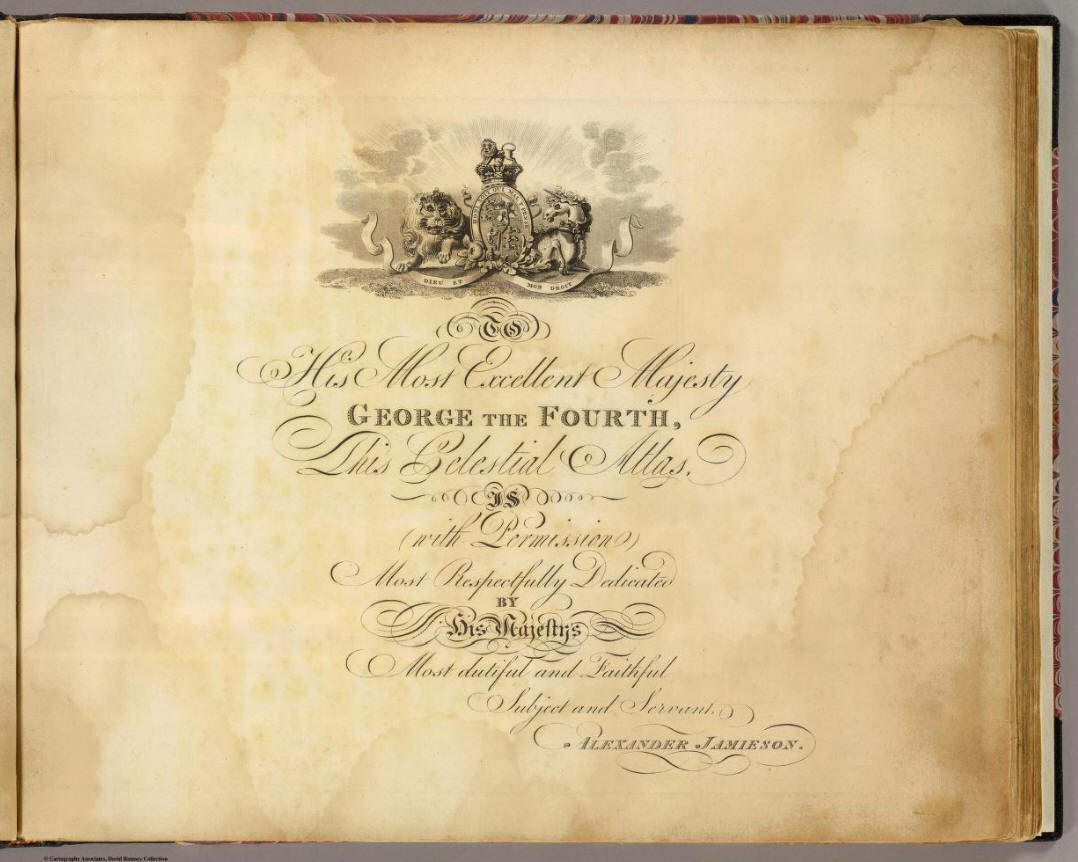 HONI SOIT QUI MAL Y PENSE
DIEU ET MON DROIT
TO
His Most Excellent Majesty
GEORGE THE FOURTH,
This Celestial Atlas,
IS
(with Permission)
Most Respectfully Dedicated
BY
His Majeſtys
Most dutiful and Faithful
Subject and Servant.
ALEXANDER JAMIESON.
© Cartography Associates, David Rumsey Collection